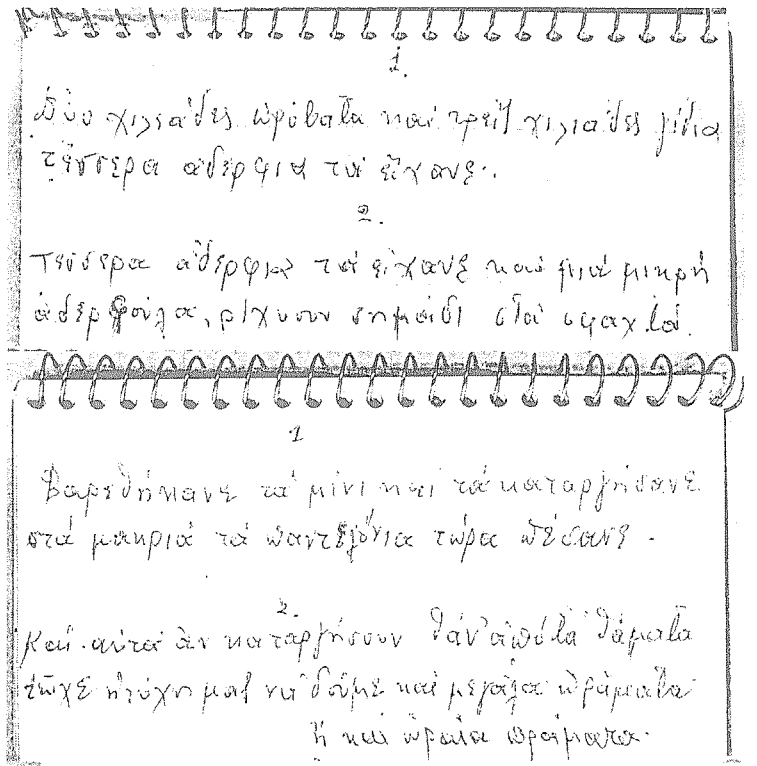 1.
Δύο χιλιάδες πρόβατα καί τρεῖς χιλιάδες γίδια
τέσσερα ἀδέρφια τά εἴχανε.
2.
Τέσσερα ἀδέρφια τά εἴχανε καί μιά μικρή
ἀδερφούλα, ρίχνουν σημάδι στά σφαχτά.
1
Βαρεθήκανε τά μίνι καί τά καταργήσανε
στά μακριά τά παντελόνια τώρα πέσανε.
2.
Καί αὐτά ἄν καταργήσουν θἆν' ἀπό τά θάματα
τὦχε ἡ τύχη μας νά δοῦμε καί μεγάλα πράματα
ἤ καί ὡραῖα πράματα.